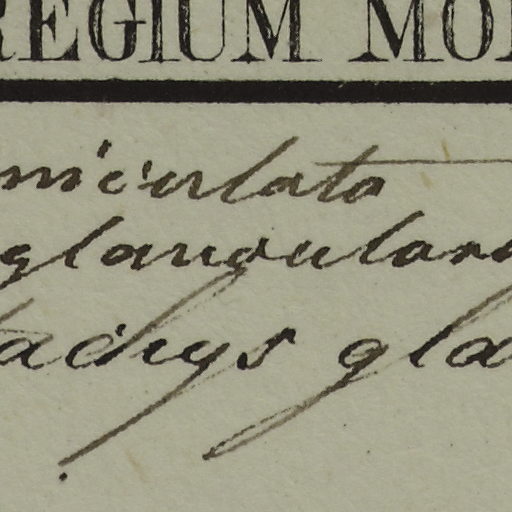 REGIUM MO
niculato
glandular
tachys gla